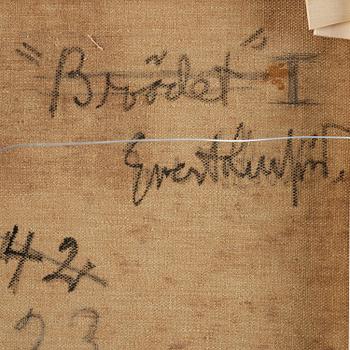 "Brödet" I
Evert Lundquist.
42
23